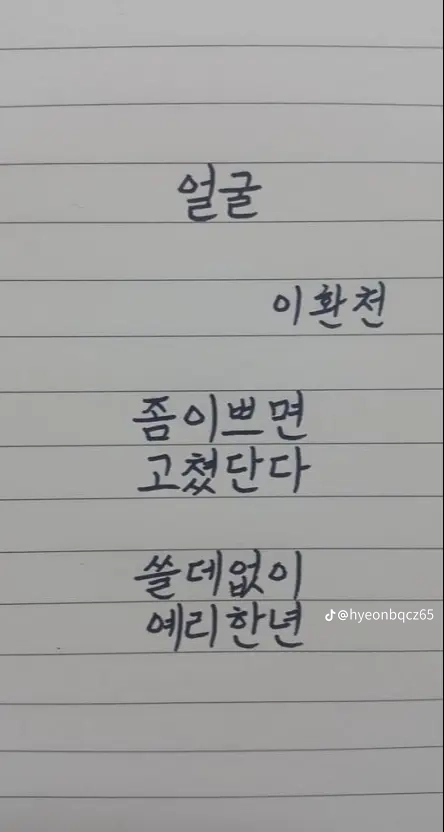 얼굴
이환천
좀이쁘면
고쳤단다
쓸데없이
예리한년
@hyeonbqcz65